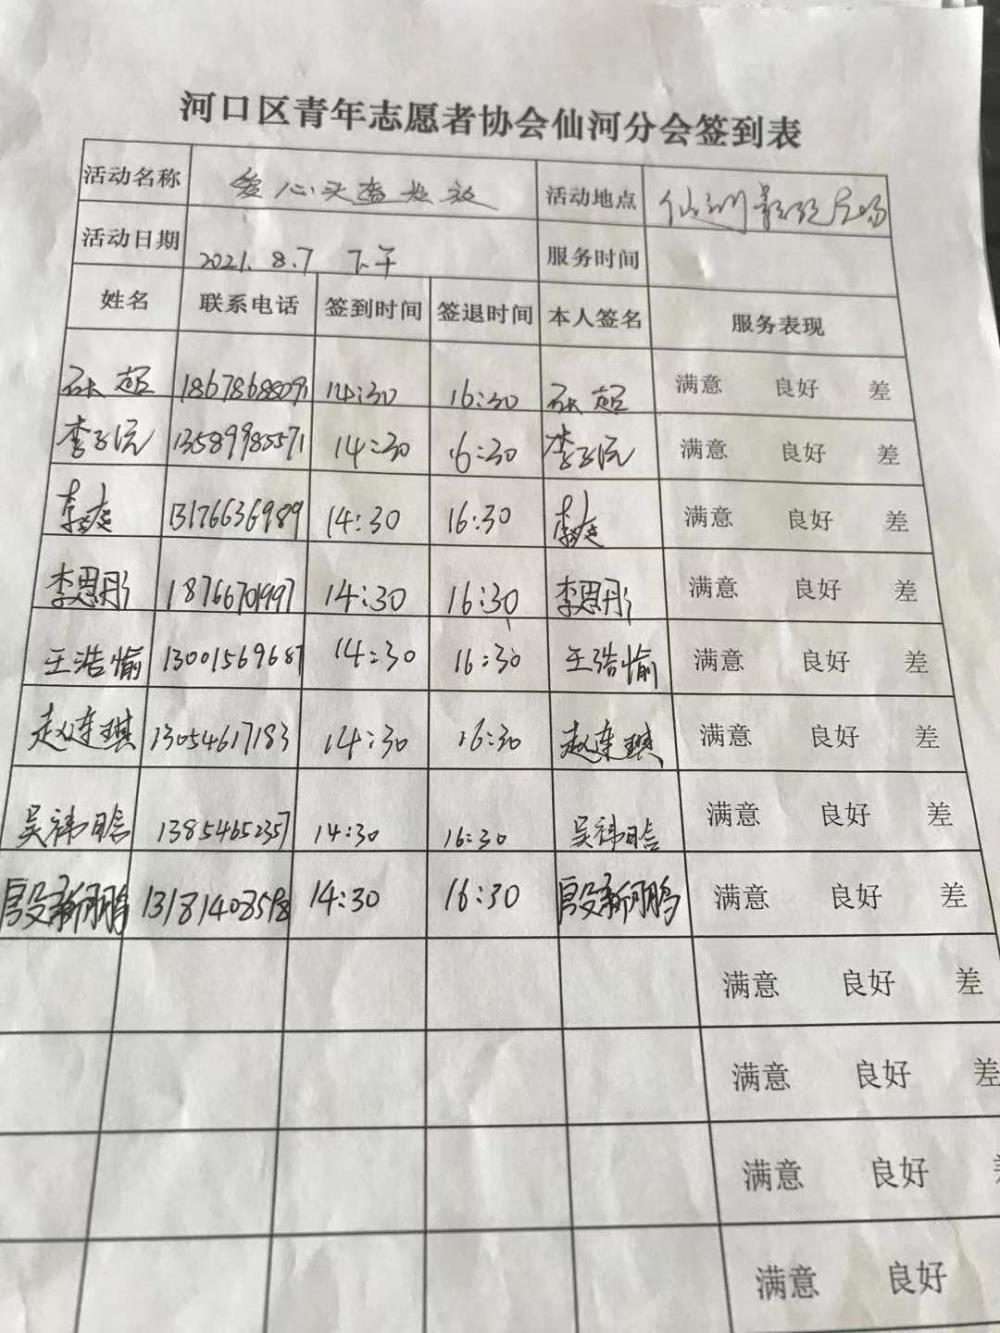 河口区青年志愿者协会仙河分会签到表
活动名称 爱心义 活动地点 仙河影视广场
活动日期 2021.8.7 下午 服务时间
姓名 联系电话 签到时间 签退时间 本人签名 服务表现
石超 18678688091 14:30 16:30 石超 满意 良好 差
李子沅 13589985571 14:30 16:30 李子沅 满意 良好 差
13176636989 14:30 16:30 满意 良好 差
李思彤 18766701997 14:30 16:30 李思彤 满意 良好 差
王浩愉 13001569687 14:30 16:30 王浩愉 满意 良好 差
赵连琪 13054617183 14:30 16:30 赵连琪 满意 良好 差
吴祎晗 13854652357 14:30 16:30 吴祎晗 满意 良好 差
殷新鹏 13181408598 14:30 16:30 殷新鹏 满意 良好 差
满意 良好 差
满意 良好 差
满意 良好
满意 良好